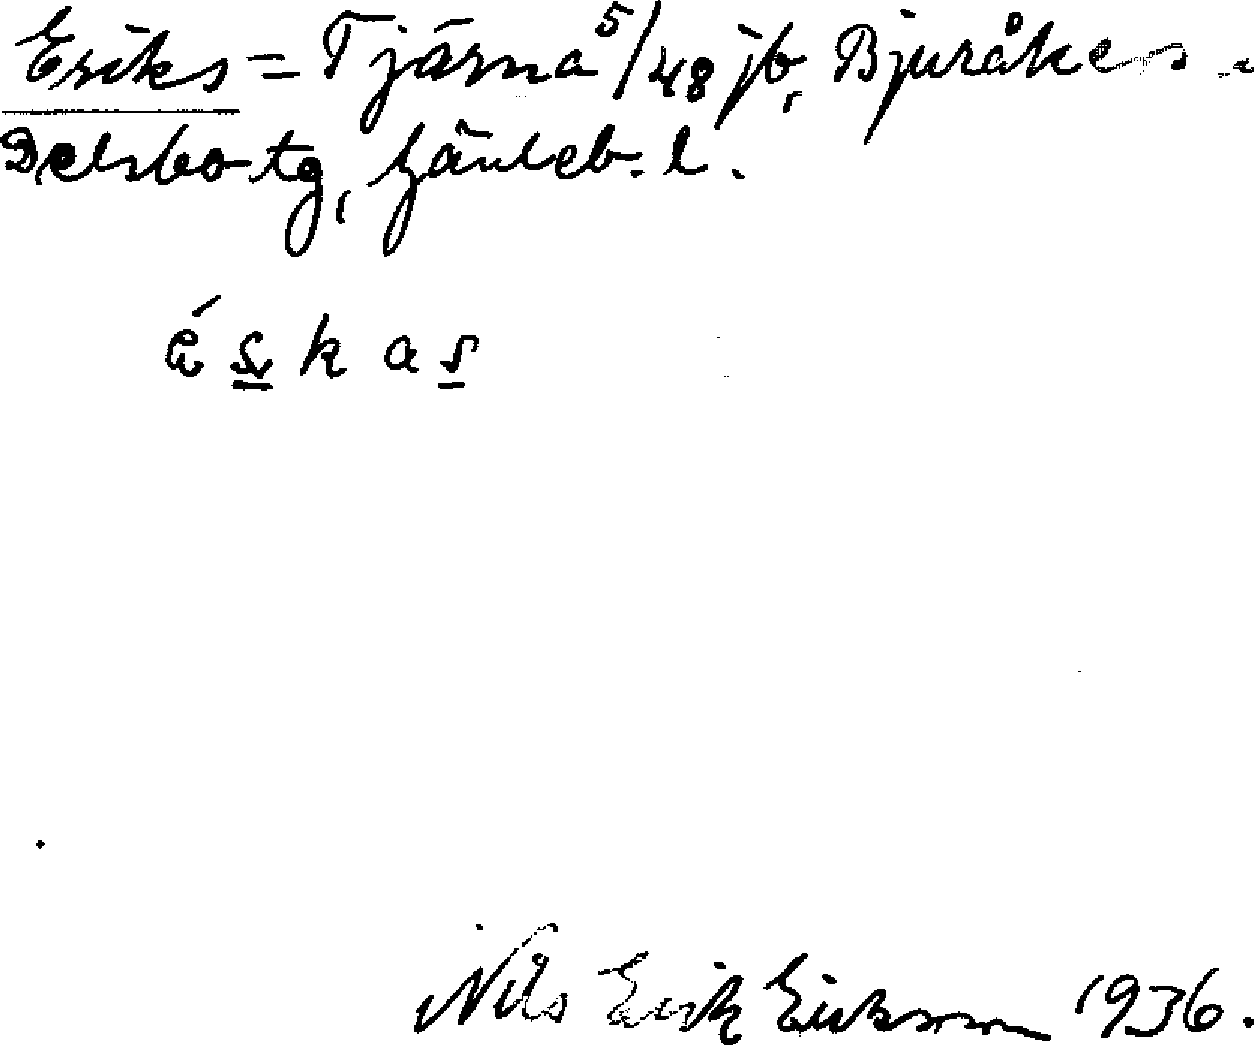 Eriks = Tjärna 5/48 jb, Bjuråkers s.
Delsbo tg, Gävleb. l.
é s k a s
Nils Erik Eriksson 1936.